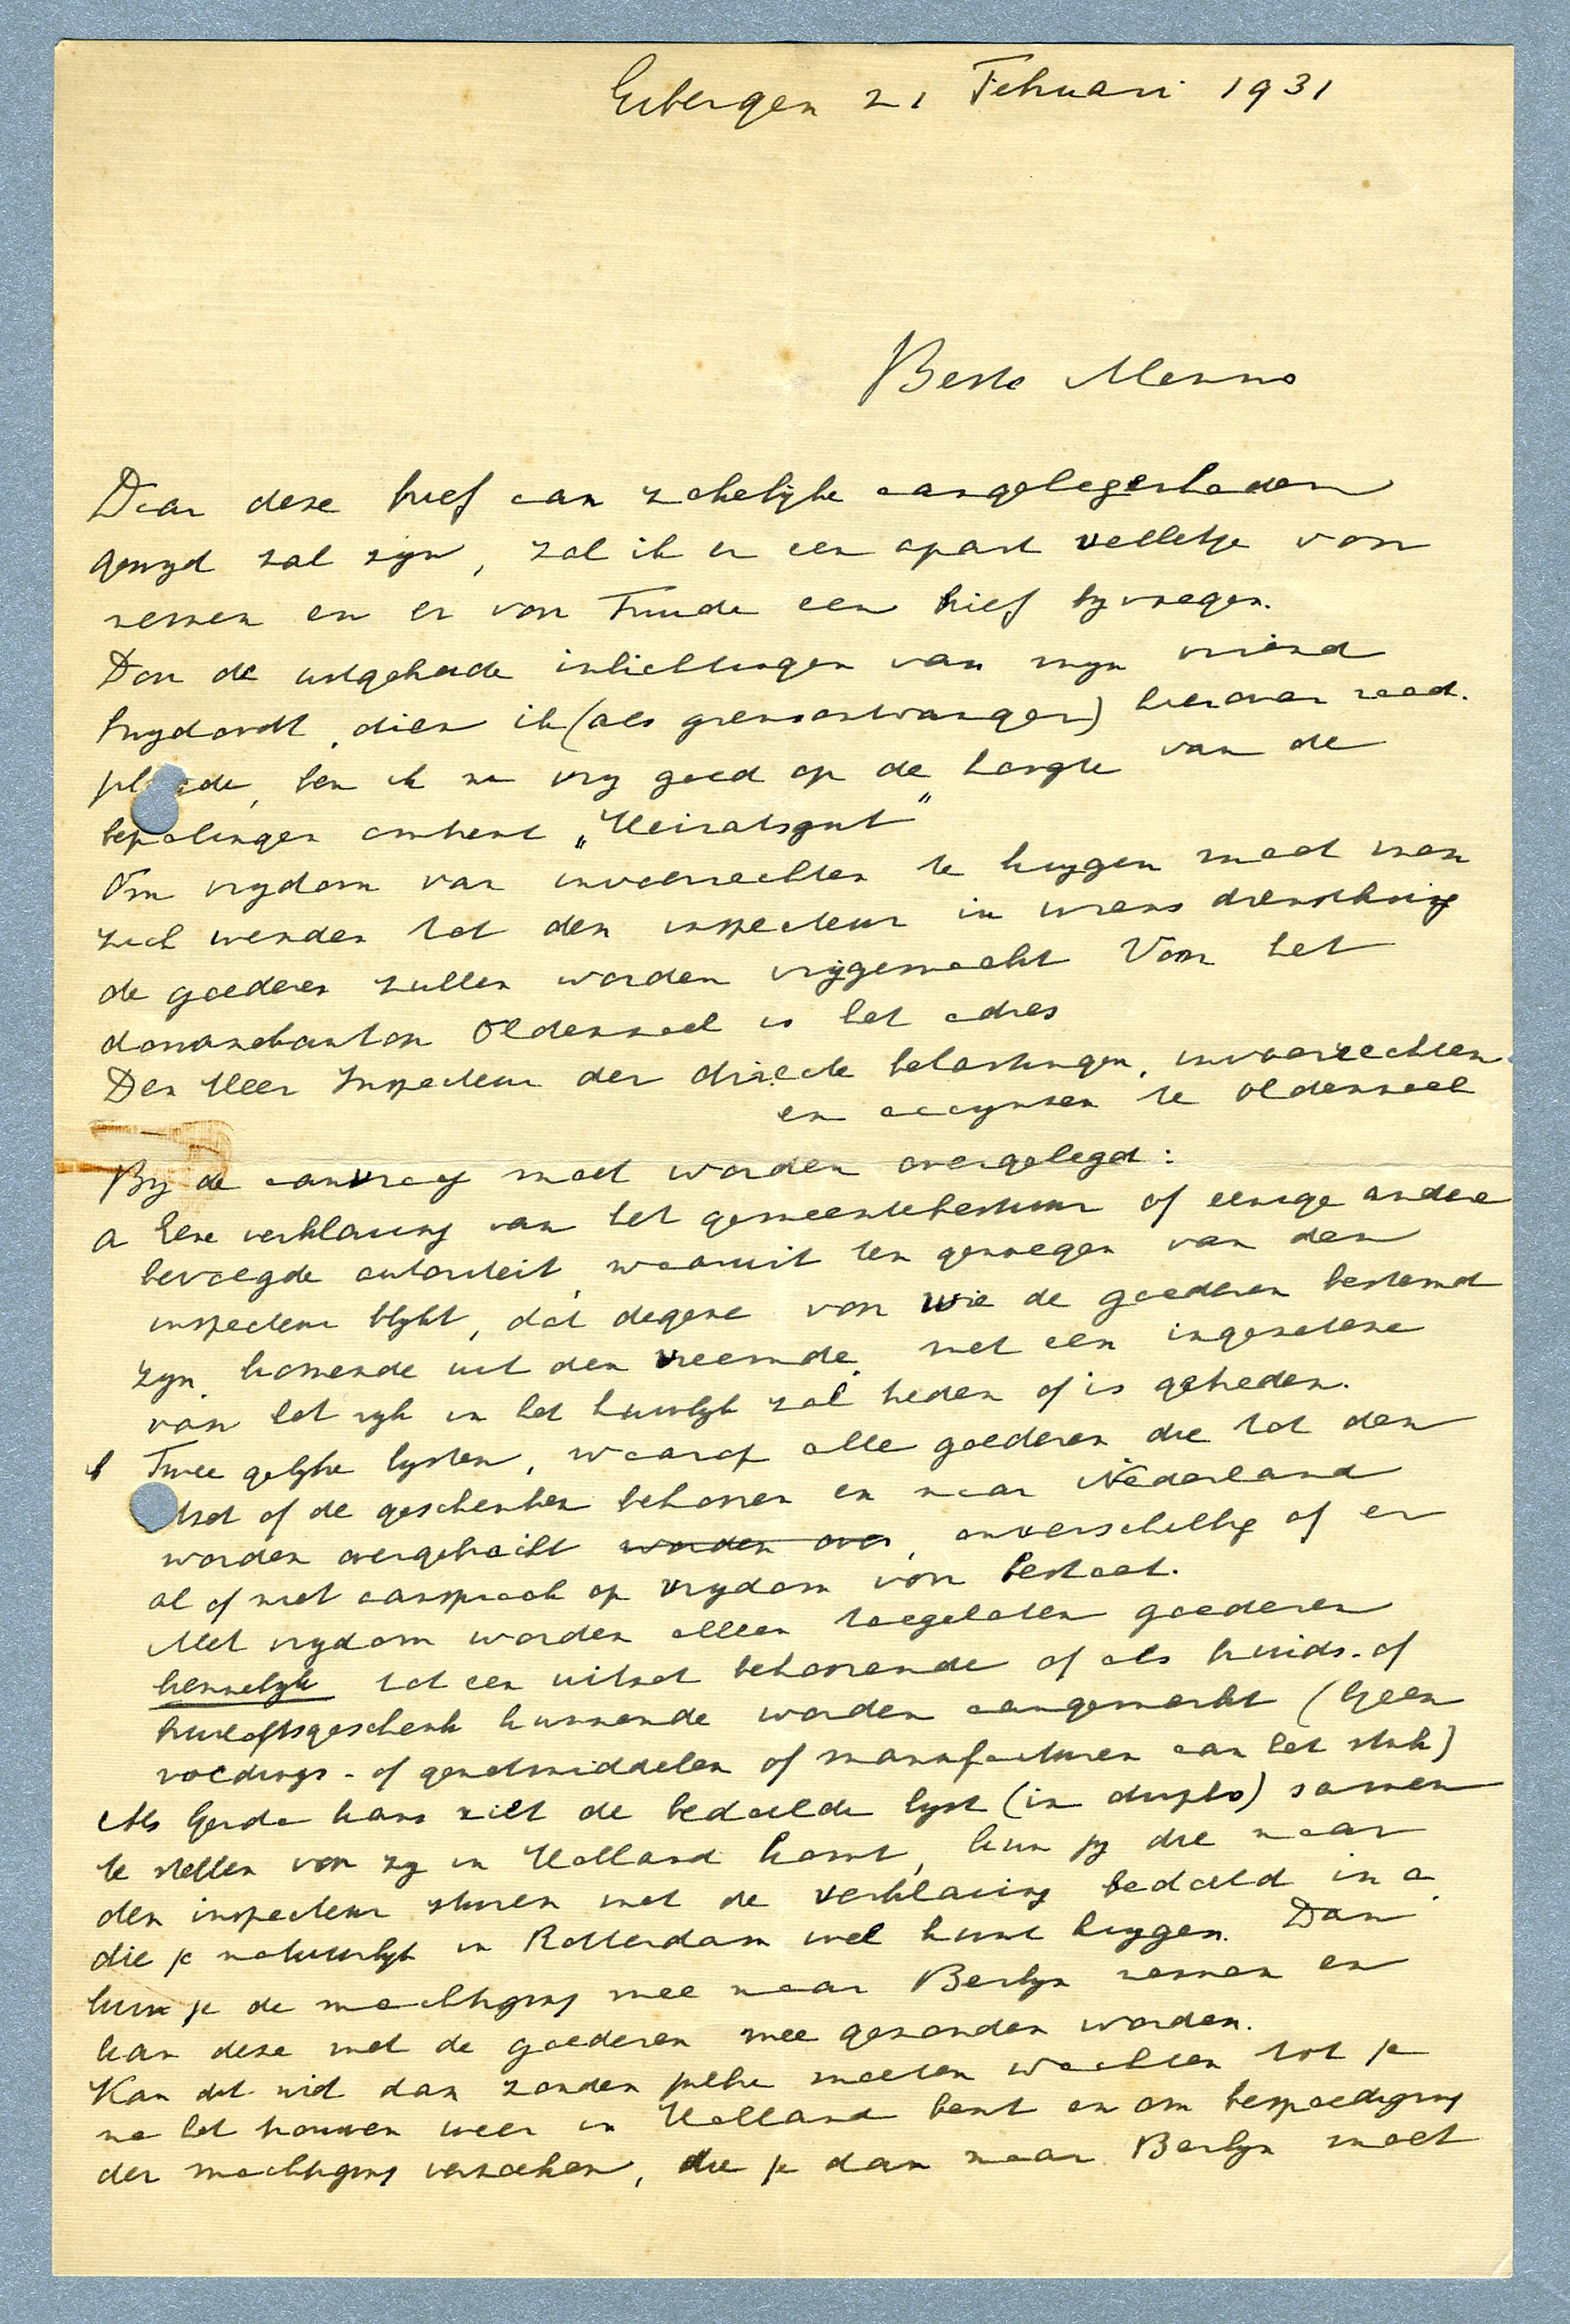 Eibergen 21 Februari 1931
Beste Menno
Daar deze brief aan zakelijke aangelegenheden
gewijd zal zijn, zal ik er een apart velletje voor
nemen en er voor Truude een brief bijvoegen.
Door de uitgebreide inlichtingen van mijn vriend
dien ik (als grensontvanger) hierover raad-
pl de, ben ik nu vrij goed op de hoogte van de
bepalingen omtrent „Heiratsgut"
Om vrijdom van invoerrechten te krijgen moet men
zich wenden tot den inspecteur in wiens dienstkring
de goederen zullen worden vrijgemaakt Voor het
douanekantoor Oldenzaal is het adres
Den Heer Inspecteur der directe belastingen, invoerrechten
en accijnzen te Oldenzaal
Bij de aanvraag moet worden overgelegd:
a Eene verklaring van het gemeentebestuur of eenige andere
bevoegde autoriteit, waaruit ten genoegen van den
inspecteur blijkt, dat degene voor wie de goederen bestemd
zijn, komende uit den vreemde, met een ingezetene
van het rijk in het huwelijk zal treden of is getreden.
b Twee gelijke lijsten, waarop alle goederen die tot den
tzet of de geschenken behooren en naar Nederland
worden overgebracht worden over, onverschillig of er
al of niet aanspraak op vrijdom voor bestaat.
Met vrijdom worden alleen toegelaten goederen
kennelijk tot een uitzet behoorende of als bruids- of
bruiloftsgeschenk kunnende worden aangemerkt (Geen
voedings- of genotmiddelen of manufacturen aan het stuk)
Als Gerda kans ziet de bedoelde lijst (in duplo) samen
te stellen voor zij in Holland komt, kun jij die naar
den inspecteur sturen met de verklaring bedoeld in a
die je natuurlijk in Rotterdam wel kunt krijgen. Dan
kun je de machtiging mee naar Berlijn nemen en
kan deze met de goederen mee gezonden worden.
Kan dit niet dan zouden jullie moeten wachten tot je
na het trouwen weer in Holland bent en om bespoediging
der machtiging verzoeken, die je dan naar Berlijn moet